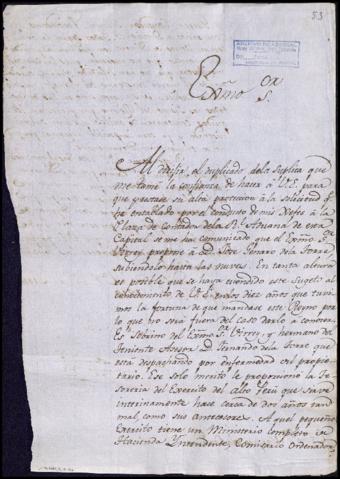 53
Exmo Sor.
Al dirigir el duplicado dela Suplica que
me tomé la confianza de hacer à V.E. para
que prestase su alta proteccion à la solicitud q.e
he entablado por el conducto de mis Xefes à la
Plaza de Contador de la Rl. Aduana de esta
Capital se me ha comunicado que el Exmo Sor.
Virrey propone à D. Jose Ignaro dela Torre
subiendolo hasta las nuves. En tanta altura
es posible que se haya escondido este Sugeto al
conocimiento de V.E. en los diez años que tuvi
mos la fortuna de que mandase este Reyno por
lo que no será fuera del caso darlo à conocer.
Es Sobrino del Exmo Sr. Virrey, y hermano del
Teniente Asesor D. Fernando dela Torre que
está despachando por enfermedad del propie
tario. Ese solo merito le proporcionó la Te
soreria del Exercito del alto Perú que sirve
interinamente hace cerca de dos años tan
mal, como sus antecesores. A quel pequeño
Exercito tiene un Ministerio completo de
Hacienda Yntendente, Comisario Ordenador,